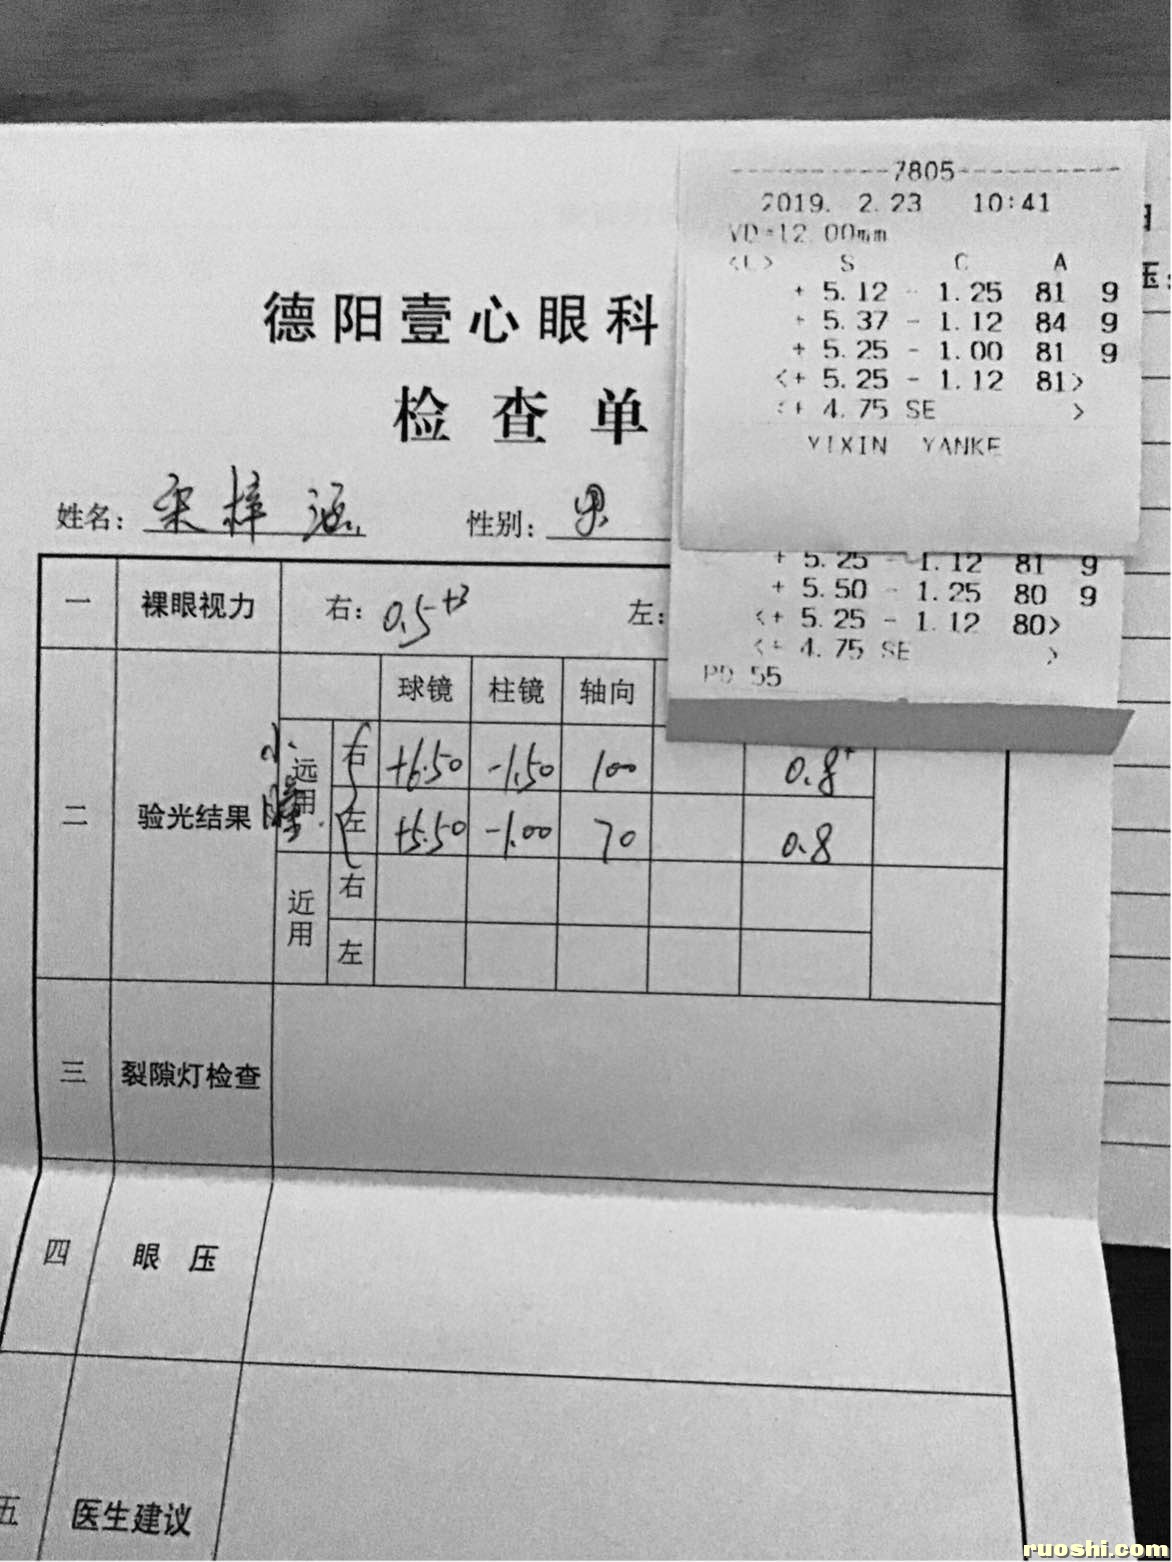 ----------7805----------
2019. 2.23 10:41
VD=12.00mm
<L> S C A
+ 5.12 - 1.25 81 9
+ 5.37 - 1.12 84 9
+ 5.25 - 1.00 81 9
<+ 5.25 - 1.12 81>
<+ 4.75 SE >
YIXIN YANKE
+ 5.25 - 1.12 81 9
+ 5.50 - 1.25 80 9
<+ 5.25 - 1.12 80>
<+ 4.75 SE >
PD 55
压:
德阳壹心眼科
检查单
姓名: 宋梓涵 性别: 男
一 裸眼视力 右: 0.5+3 左:
球镜 柱镜 轴向
二 验光结果 小瞳 远用 右 +6.50 -1.50 100 0.8+
左 +5.50 -1.00 70 0.8
近用 右
左
三 裂隙灯检查
四 眼压
五 医生建议
ruoshi.com